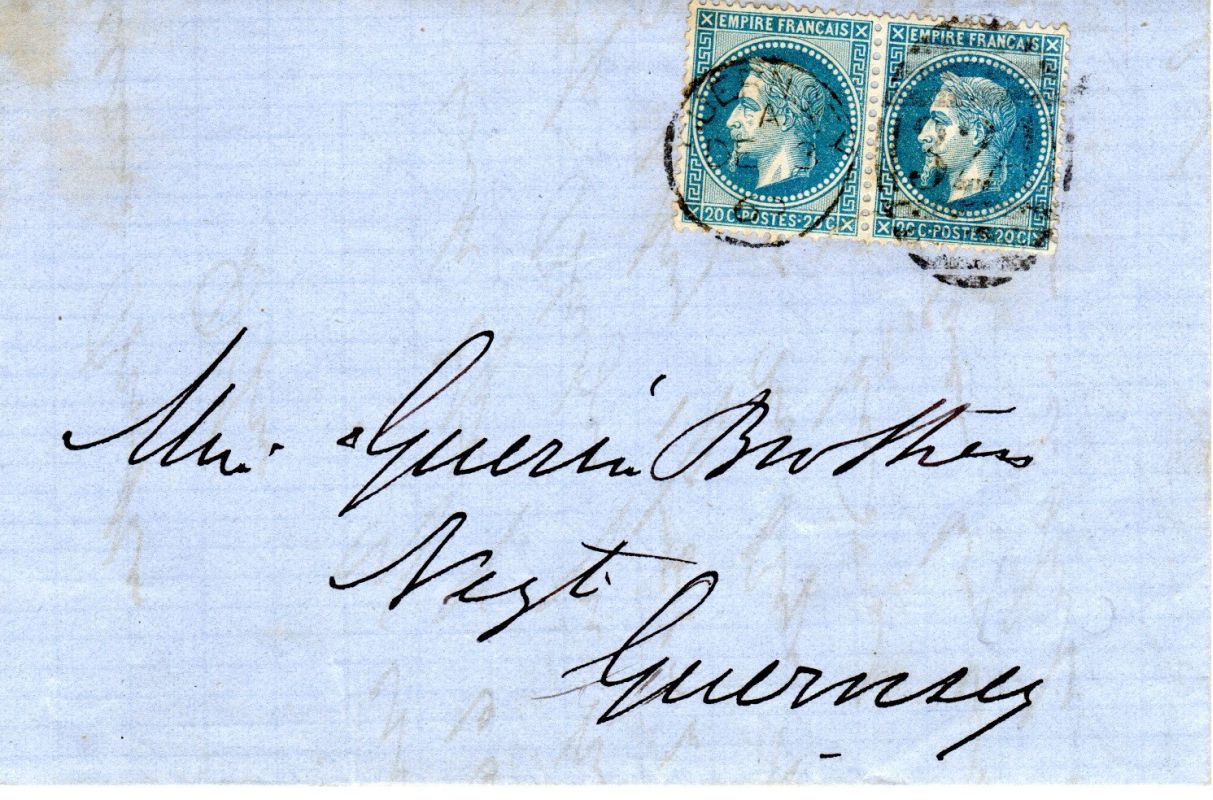 EMPIRE FRANCAIS EMPIRE FRANCAIS
20 C·POSTES·20 C 20 C·POSTES·20 C
Guerin Brothers
Negt.
Guernsey